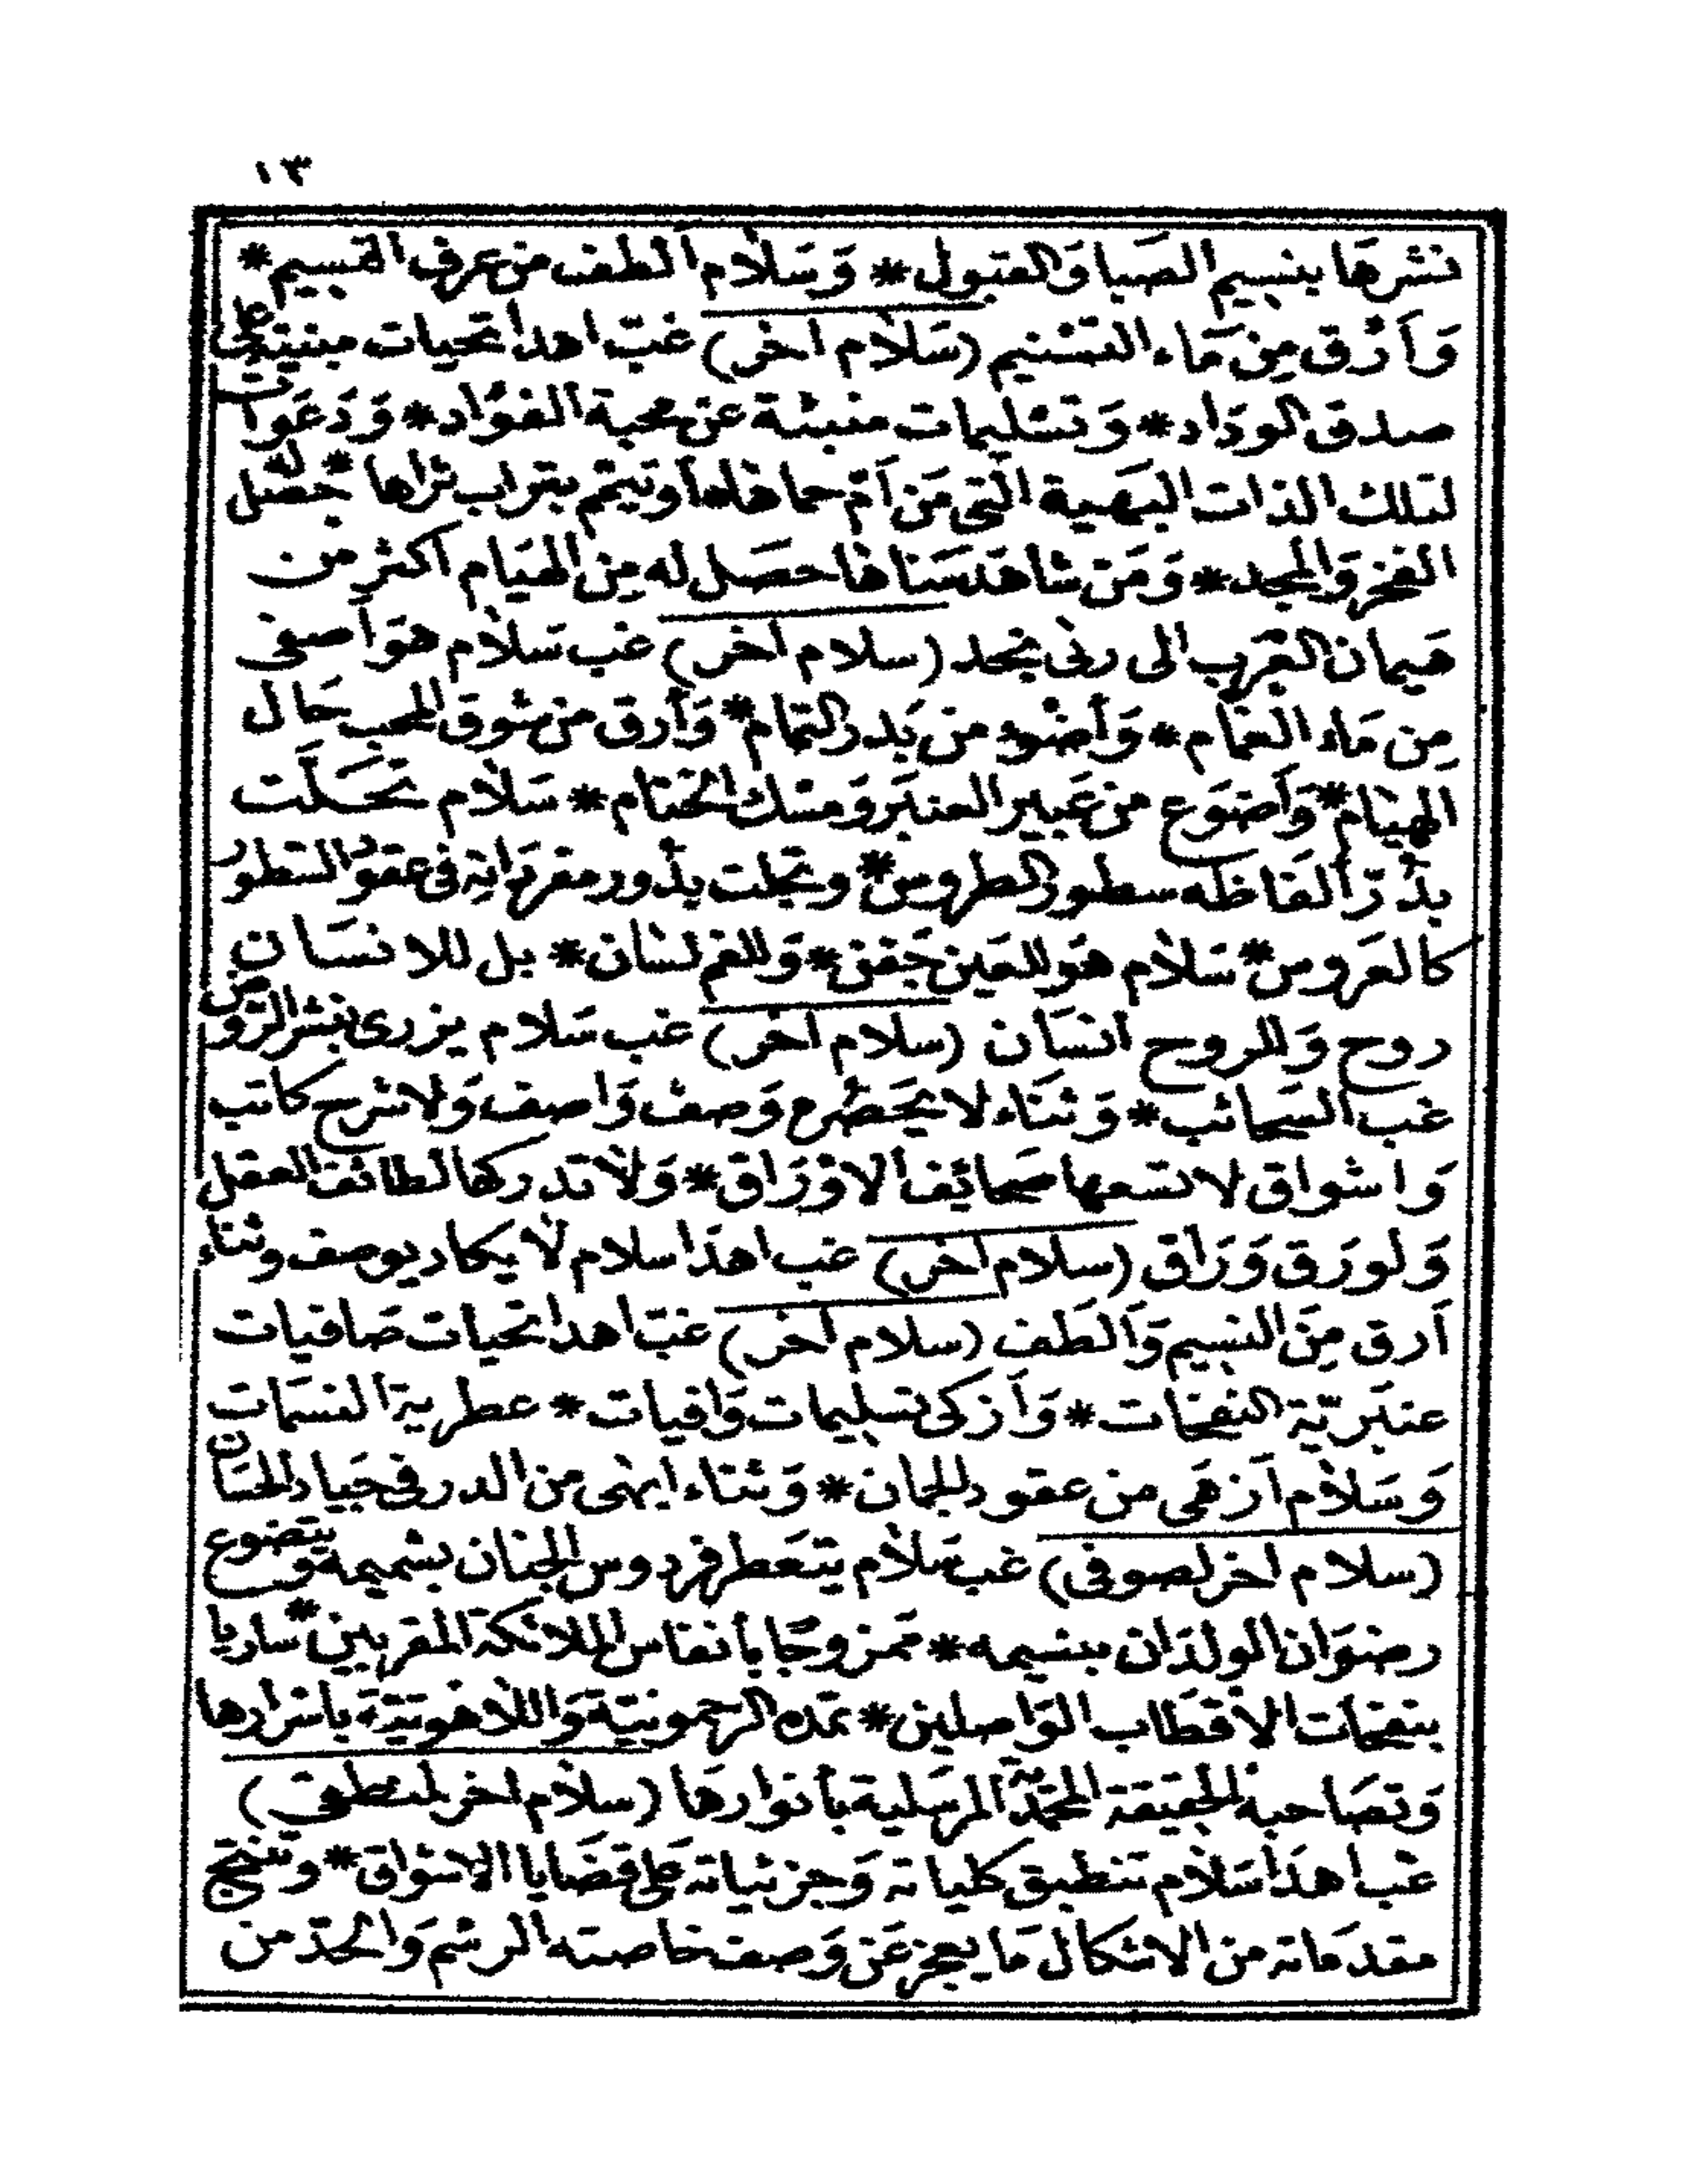 ١٣
نشرهَا بنسيم الصَبا وَالقبول * وَسَلام ألطف من عرف القسيم *
وَأرَق مِن مَاء التسْنيم (سَلام اخر) غبّ اهدا تحيات مبنية على
صدق الودَاد * وَتسْليمات منبئة عن محبة الفؤاد * وَدَعَوات
لتلك الذات البَهية التى مَن أمّ حماهَا أو تيمم بتراب ثراها * حصَل له
الفخر وَالمجد * وَمَن شاهَد سَناهَا حصَل له مِن الهيَام أكثر من
هَيمان العَرَب الى ربى نجد (سلام اخر) غب سَلام هوَ أصفى
مِن مَاء الغمَام * وَأضوء من بَدر التمام * وَأرق من شوق المحب حَال
الهيَام * وَأضوَع من عَبير العنبَر وَمسْك الختام * سَلام تحَلّت
بدُرَر ألفاظه سطور الطروس * وتجلت بدُور مقرّراته فى عقود السّطور
كالعَروس * سَلام هوَ للعَين جَفن * وَللفم لسَان * بل للانسَان
روح وَللروح انسَان (سلام اخر) غب سَلام يزرى بنشر الروض
غب السَحائب * وَثنَاء لا يحَصُره وَصف وَاصف وَلا شرح كاتب
وَاشواق لا تسعها صَحائف الاوْرَاق * وَلا تدركها لطائف العقل
وَلو رَق وَرَاق (سلام اخر) غب اهدَا سلام لا يكاد يوصف وثناء
أرق مِنَ النسيم وَألطَف (سلام اخر) غبّ اهدا تحيات صَافيات
عنبَريّة النفحَات * وَأزكى تسليمات وَافيات * عطرية النسمَات
وَسَلام أزهَى من عقود الجمان * وَثنَاء ابهى من الدر فى جيَاد الحسَان
(سلام اخر لصوفى) غب سَلام يتعَطر فردوس الجنان بشميمه ويتضوع
رضوَان الولدَان بنسيمه * ممزوجًا بأنفاس الملائكة المقربين * ساريا
بنفحَات الأقطَاب الوَاصلين * تمده الرحمونيّة وَاللاهوتيّة بأسْرارها
وَتصَاحبه الحقيقة المحمّدية المرسَلية بأنوارهَا (سلام اخر لمنطقى)
غب اهدَا سَلام تنطبق كلياته وَجزئياته عَلى قضَايا الاشوَاق * وتنتج
مقدمَاته من الاشكال مَا يعجز عَن وَصف خاصته الرسْم وَالحدّ من